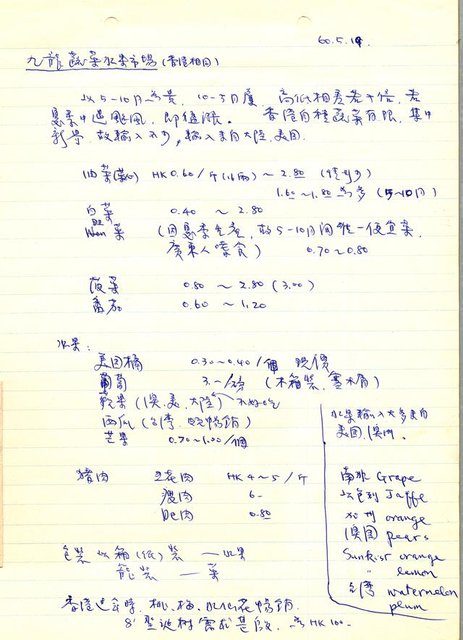 60.5.19.
九龍蔬菜水菓市場(香港相同)
以5-10月為貴,10-5月廉,高低相差若干倍,若
夏季中遇颱風,即猛漲。香港自種蔬菜有限,集中
新界,故輸入不少,輸入來自大陸、美國.
油菜(菜心) HK 0.60/斤(16兩)~2.80
1.60~1.80為多(5~10月)
白菜 0.40 ~ 2.80
Wen菜 (因夏季生產,故5-10月間唯一便宜菜,
廣東人喜食) 0.70~0.80
菠菜 0.80 ~ 2.80 (3.00)
番茄 0.60 ~ 1.20
水菓:
美國橘 0.30~0.40/個 現價
葡萄 3.-/磅 (木箱裝,塞木屑)
蘋果(澳.美.大陸) 不好吃
西瓜(台灣.暢銷)
芒果 0.70~1.00/個
水菓輸入大多來自
美國.澳洲.
南非 Grape
以色列 Jaffe
加州 orange
澳國 pears
Sunkist orange
" lemon
台灣 watermelon
plum
猪肉 五花肉 HK 4~5/斤
瘦肉 6-
肥肉 0.80
包裝以箱(紙)裝 — 水果
籠裝 — 菜
香港過年時,桃、梅、水仙花暢銷.
&聖誕樹需求甚殷,為HK100-